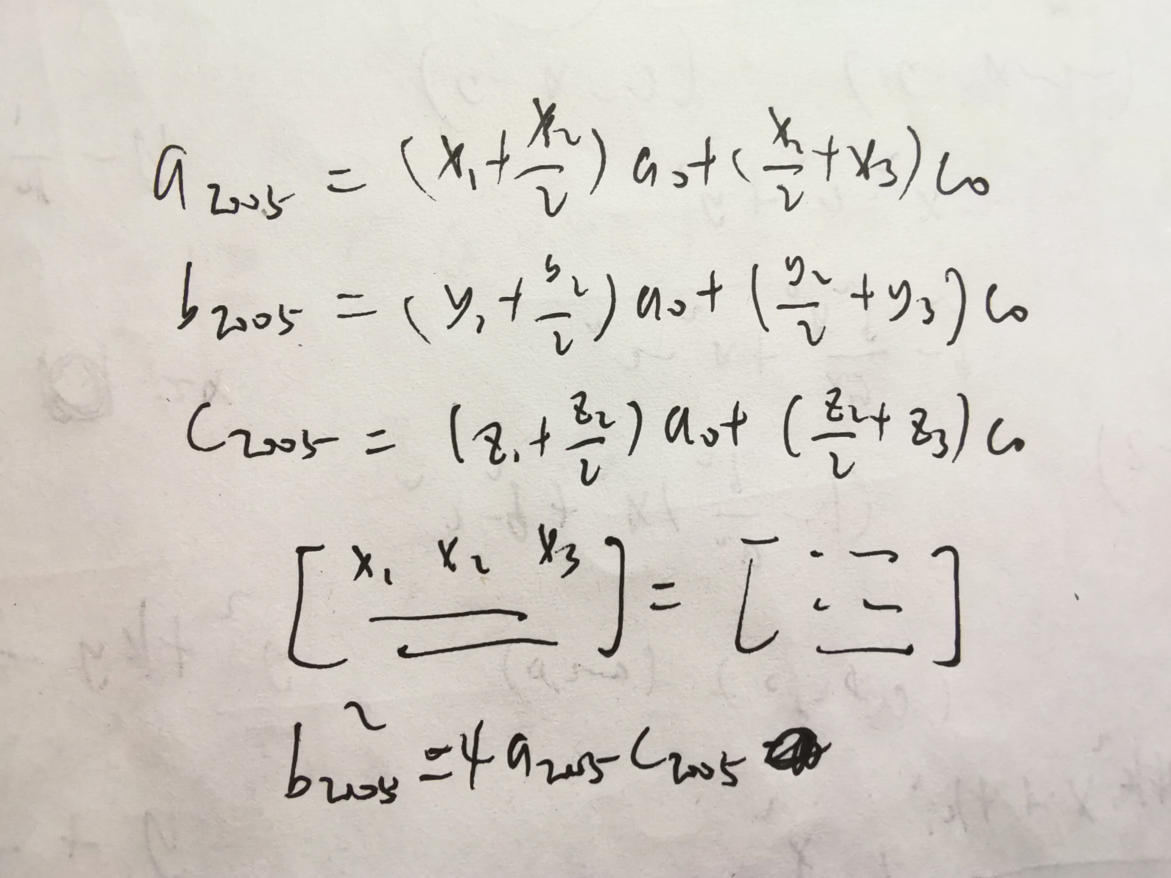 a₂₀₀₅ = (x₁ + x₂/2) a₀ + (x₂/2 + x₃) c₀
b₂₀₀₅ = (y₁ + y₂/2) a₀ + (y₂/2 + y₃) c₀
c₂₀₀₅ = (z₁ + z₂/2) a₀ + (z₂/2 + z₃) c₀
[x₁ x₂ x₃] = [ ]
b₂₀₀₅² = 4 a₂₀₀₅ c₂₀₀₅